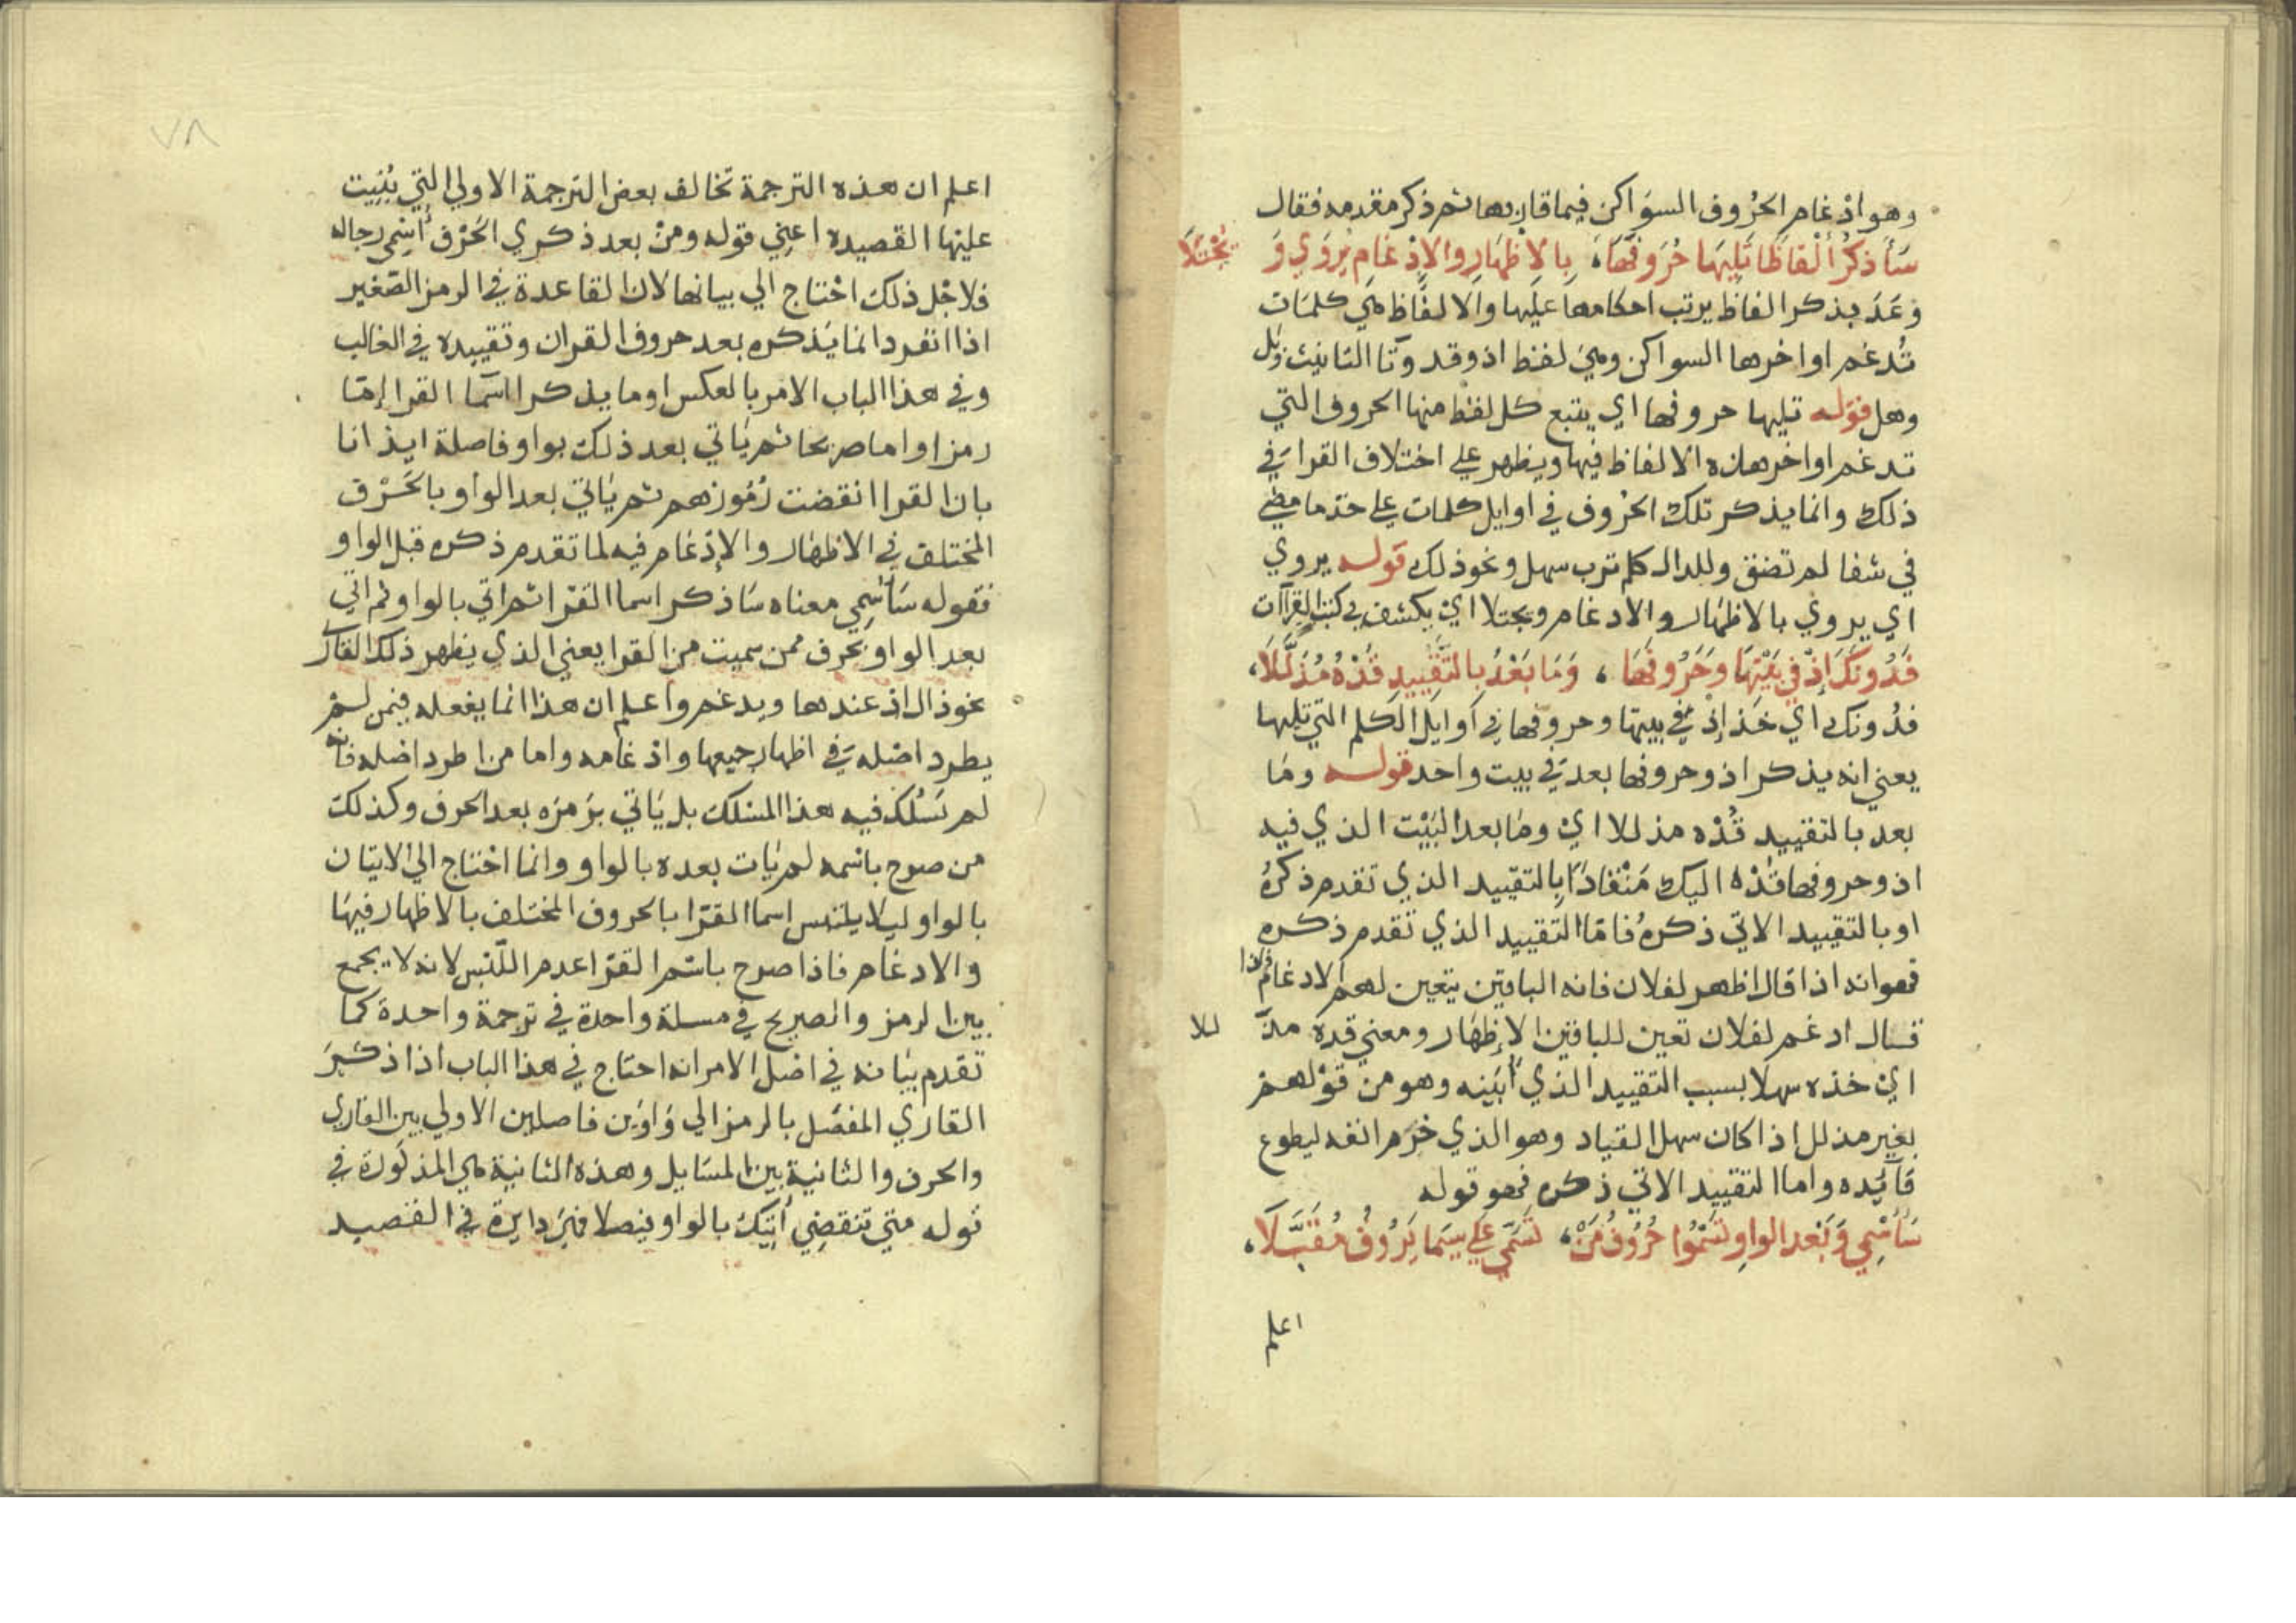 وهو ادْغام الحرُوف السوَاكن فيما قاربها ثم ذكر مقدمه فقال
سَأَذكرُ أَلْفَاظًا تَلِيهَا حُرَوفُهَا، بِالاِظهَارِ وَالاِدْغَامِ يُرْوَي وَ تُجْتَلَا
وَعَدَ بذكر الفاظ يرتب احكامها عليها والالفاظ هي كلمَات
تُدغم اواخرها السواكن وهيَ لفظ اذ وقد وتا التانيث وبل
وهل قوله تليها حروفها اي يتبع كل لفظ منها الحروف التي
تدغم اواخر هذه الالفاظ فيها ويظهر على اختلاف القرا في
ذلك وانما يذكر تلك الحرُوف في اوايل كلمات على حدّ ما مضي
في شفا لم تضق وللدال كلم ترب سهل ونحو ذلك قوله يروي
اي يروي بالاظهَار والادغام وتجتلا ايْ يكشف في كتب القراآت
فَدُونَكَ إِذْ فِي بَيْتِهَا وَحَرُوفُهَا، وَمَا بَعْدُ بِالتَّقْيِيدِ قُدْهُ مُذَلَّلَا،
فدُونك اي خذ إِذْ في بيتها وحروفها في أوايل الكلم التي تليها
يعني انه يذكر اذ وحروفها بعد في بيت واحد قوله ومَا
بعد بالتقييد قُدْه مذللا ايْ ومَا بعد البَيْت الذي فيه
اذ وحروفها قُدْه اليك مُنْقادًا بالتقييد الذي تقدم ذكرهُ
او بالتقييد الاتي ذكرهُ فامّا التقييد الذي تقدم ذكره
فهو انه اذا قال اظهر لفلان فانه الباقين يتعين لهم الادغام واذا
قال ادغم لفلان تعين للباقين الاِظهَار ومعني قده مذ للا
ايْ خذه سهلا بسبب التقييد الذي أُبَيّنه وهو من قوْلهمْ
بعير مذلل اذا كان سهل القياد وهو الذي خزم انفه ليطوع
قَايدَه واما التقييد الاتي ذكره فهو قوله
سَأُسْمِي وَبَعْدَ الوَاوِ تَسْمُوا حُرُوفُ مَنْ، تَسَمَّي عَلَى سِيمَا تَرُوقُ مُقَبَّلَا،
اعلم
٧٨
اعلم ان هذه الترجمة تخالف بعض الترجمة الاولي التي بُنِيت
عليْها القصيده اعِني قوله ومنْ بعد ذكري الحَرْف أُسْمِي رجاله
فلاجْل ذلك احْتاج الي بيانها لان القاعدة في الرمز الصَّغير
اذا انفرد انما يَذكره بعد حروف القران وتقييده في الغالب
وفي هذا الباب الامر بالعكس اوما يذكر اسَمَا القرا امّا
رمزا واما صريحا ثم ياتي بعد ذلك بواو فاصلة ايذانا
بان القرا انقضت رُمُوزهم ثم يَاتي بعد الواو بالحَرْف
المختلف في الاظهَار والاِدْغام فيه لما تقدم ذكره قبل الواو
فقوله سَأُسْمِي معناه سَاذكر اسما القرّا ثم اتي بالواو ثم اتي
بعد الواو بحرف ممن سميت من القرا يعني الذي يظهر ذلك القار
نحو ذال اذ عندها ويدغم واعلم ان هذا انما يفعله فيمن لمْ
يطرد اصْله في اظهار جميعها وادْغامه واما من اطرد اصْله فانه
لم يَسْلك فيه هذا المسْلك بل يَاتي برَمزه بعد الحرف وكذلك
من صرح باسْمه لم يَات بعده بالواو وانما احْتاج الي الايتان
بالواو ليلا يلتبس اسما القرّا بالحروف المختلف بالاظهار فيهَا
والادغام فاذا صرح باسْم القرّا عدم اللّبْس لانه لا يجمع
بين الرمز والصريح في مسلة واحدة في ترجمة واحدة كما
تقدم بيَانه في اصْل الامر انه احتاج في هذا الباب اذا ذكر
القاري المفصّل بالرمز الي وَاوَيْن فاصلين الاولي بين القاري
والحرف والثانية بين المسَايل وهذه الثانية هي المذكورة في
قوله متي تنقضِي أَتِيكَ بالواو فيصلا فهيَ دايرة في القصيد